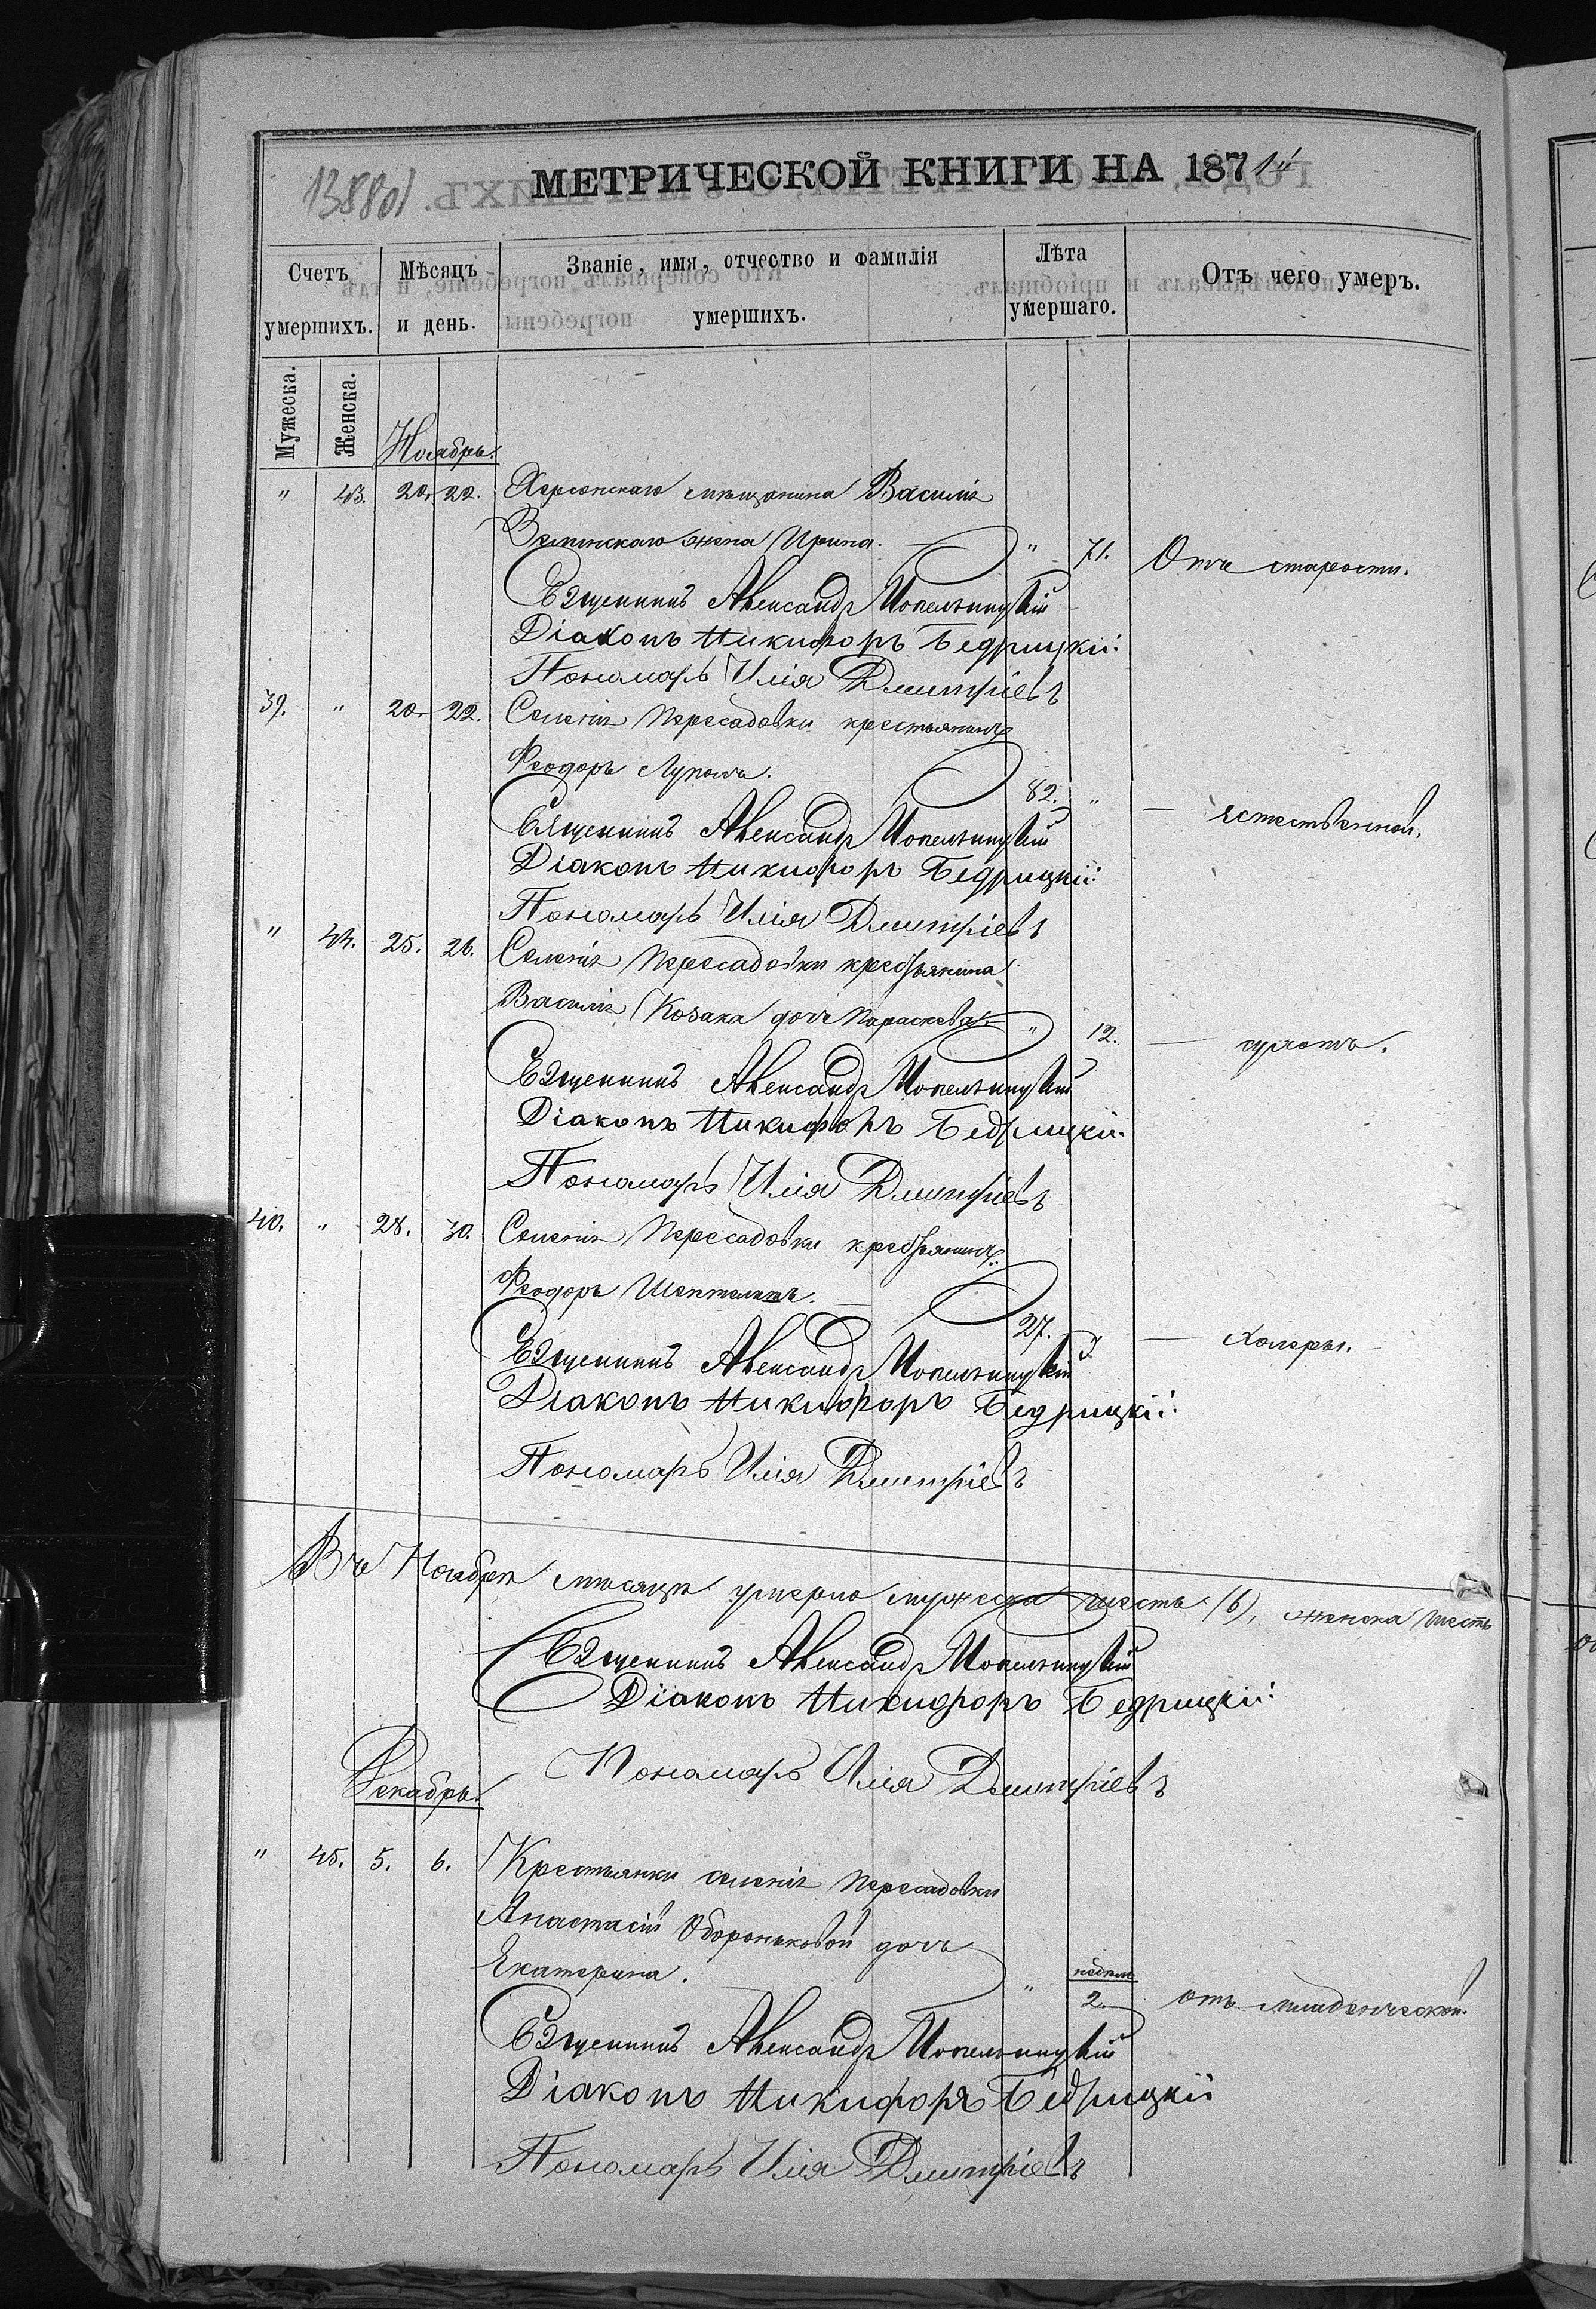 МЕТРИЧЕСКОЙ КНИГИ НА 187
Счетъ умершихъ.
Мѣсяцъ и день.
Званіе, имя, отчество и фамилія умершихъ.
Лѣта умершаго.
Отъ чего умеръ.
Мужеска.
Женска.
Ноябрь.
" 43. 20. 22. Херсонскаго мѣщанина Василія
жена Ирина. " 71. Отъ старости.
Священникъ Александръ
Діаконъ Никифоръ Бедрицкій
Пономарь Илія Дмитріевъ
39. " 20. 22. Селенія Пересадовки крестьянинъ
Феодоръ Луполъ. 82. " — естественной.
Священникъ Александръ
Діаконъ Никифоръ Бедрицкій
Пономарь Илія Дмитріевъ
" 44. 25. 26. Селенія Пересадовки крестьянина
Василія Козака дочь Параскева. " 12. —
Священникъ Александръ
Діаконъ Никифоръ Бедрицкій
Пономарь Илія Дмитріевъ
40. " 28. 30. Селенія Пересадовки крестьянинъ
Феодоръ 27. " — Холеры.
Священникъ Александръ
Діаконъ Никифоръ Бедрицкій
Пономарь Илія Дмитріевъ
Въ Ноябрѣ мѣсяцѣ умерло мужеска шесть (6), женска шесть
Священникъ Александръ
Діаконъ Никифоръ Бедрицкій
Пономарь Илія Дмитріевъ
Декабрь.
" 45. 5. 6. Крестьянки селенія Пересадовки
Анастасіи Обороньковой дочь
Екатерина. " недѣли 2. отъ младенческой.
Священникъ Александръ
Діаконъ Никифоръ Бедрицкій
Пономарь Илія Дмитріевъ